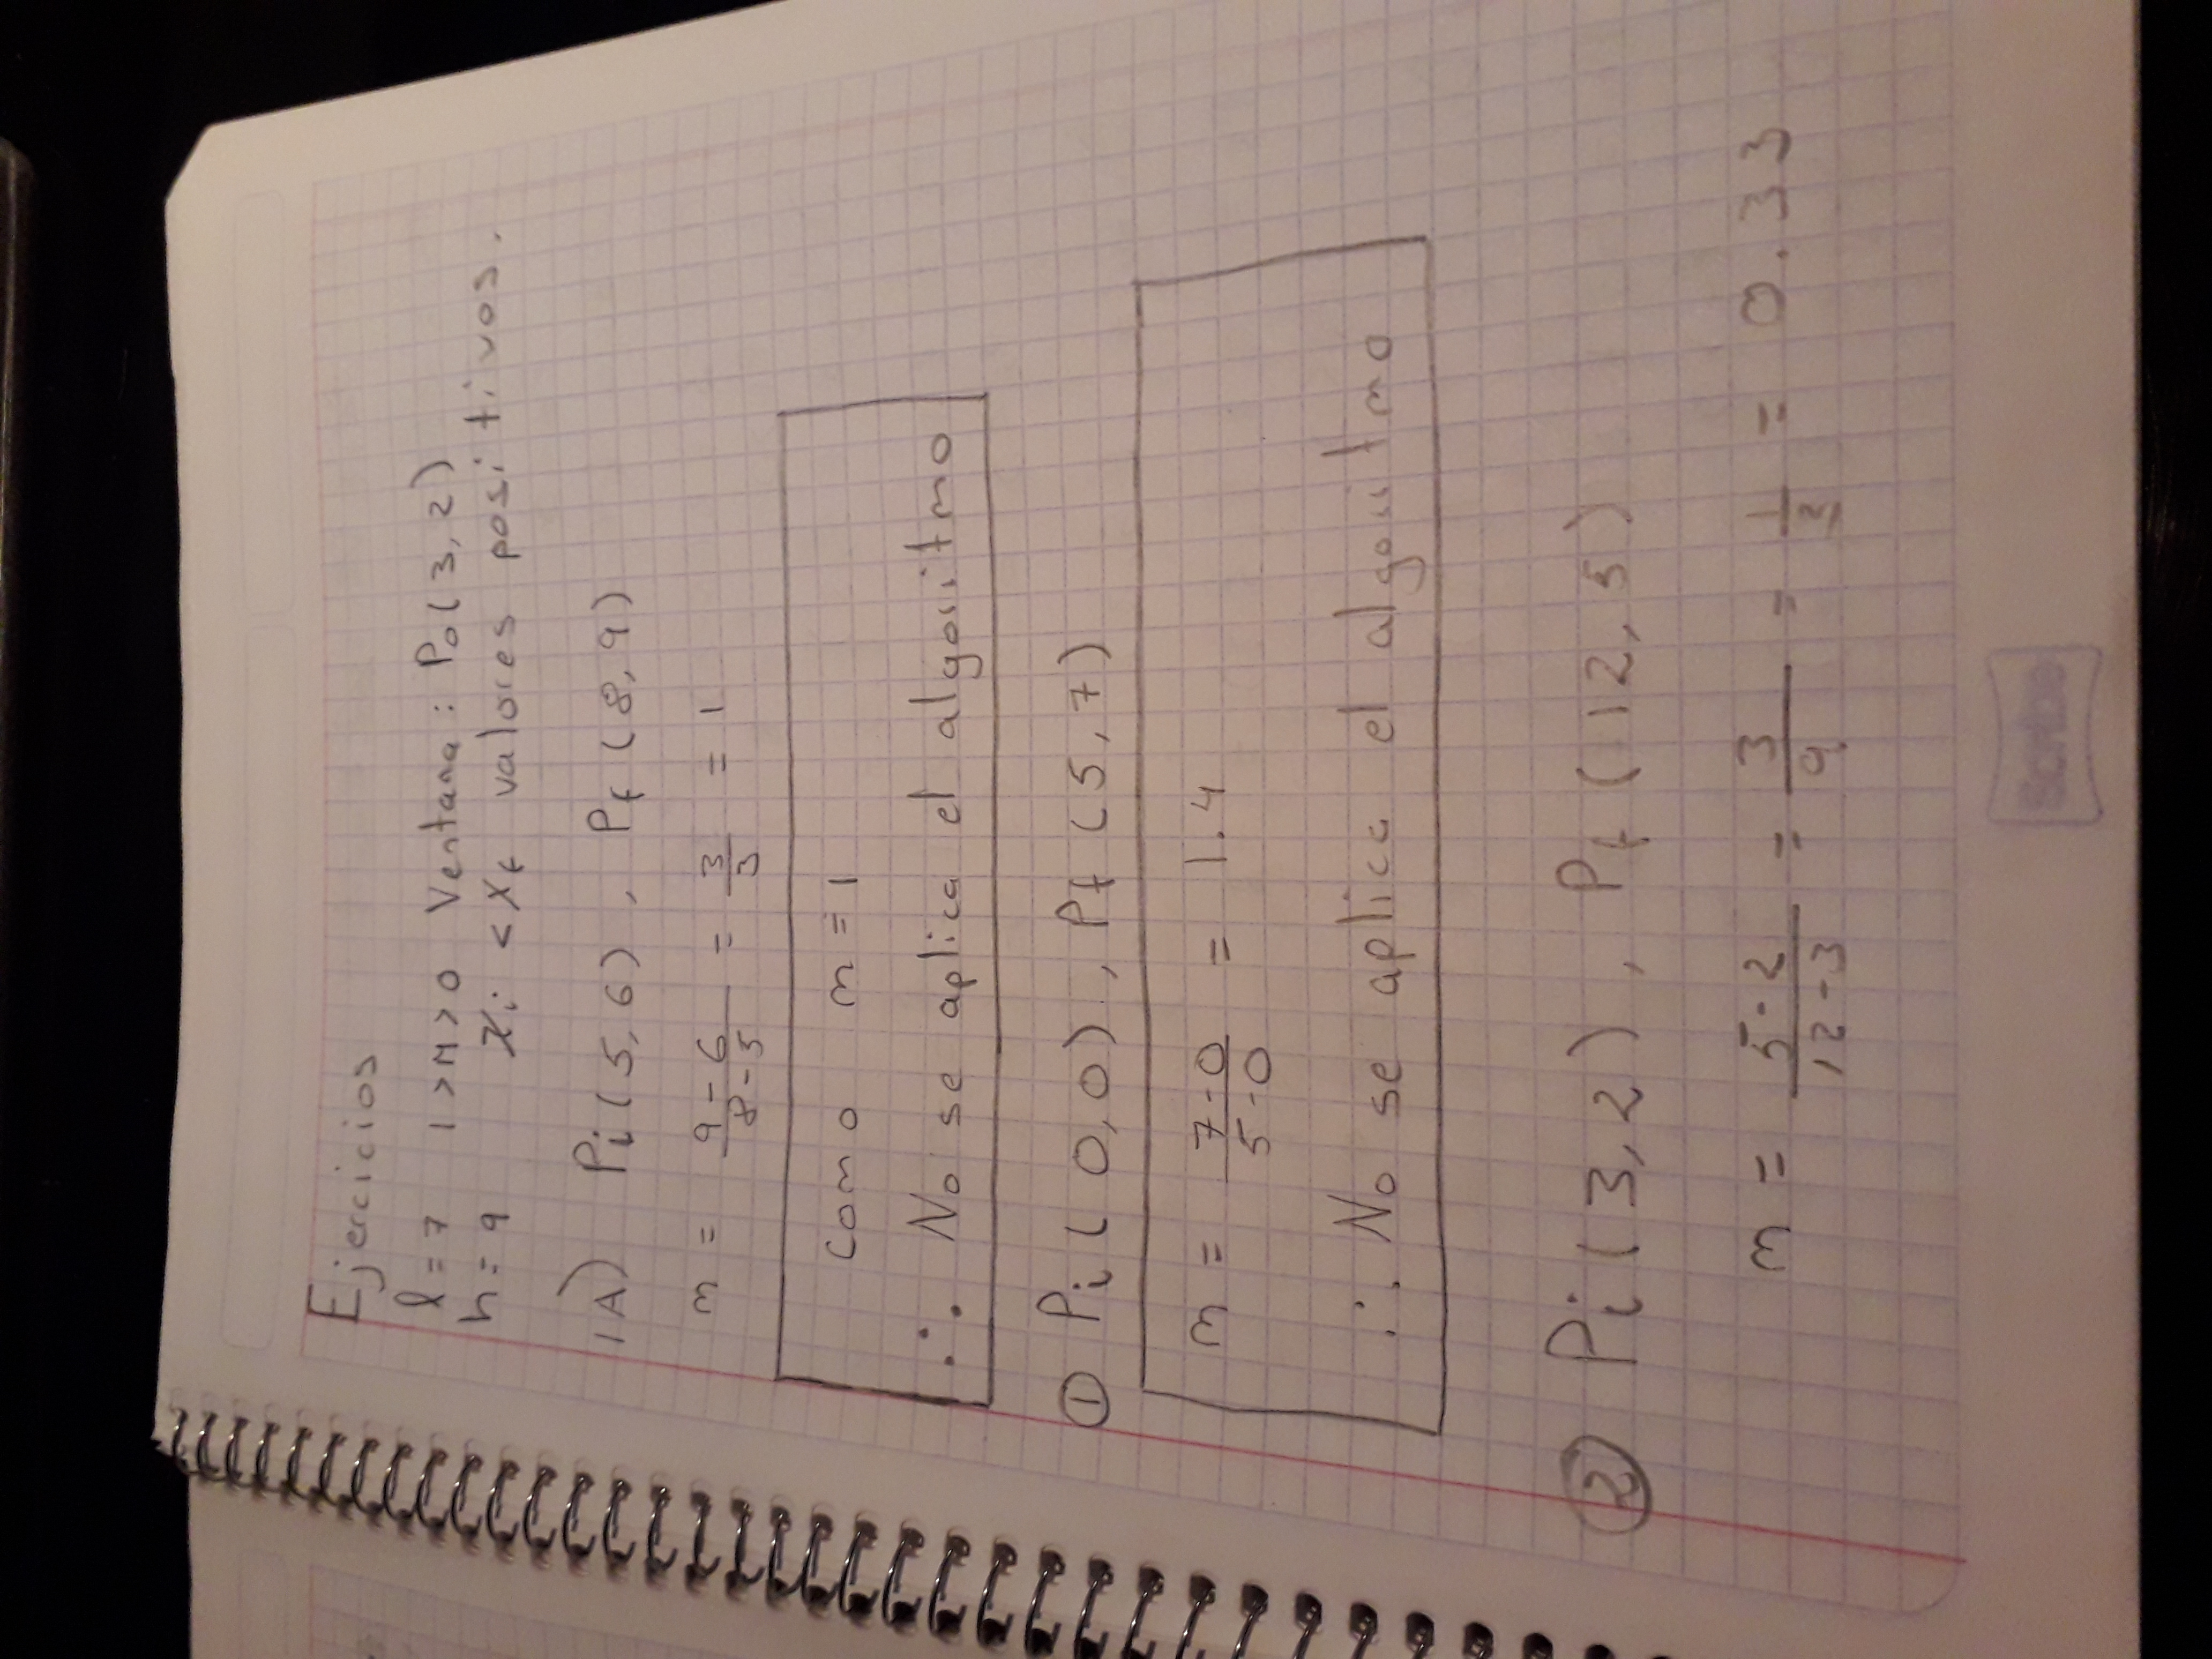 Ejercicios
l = 7 1 > m > 0 Ventana : Po(3, 2)
h = 9 Xi < Xf valores positivos.
1A) Pi(5,6) , Pf(8,9)
m = 9-6/8-5 = 3/3 = 1
Como m = 1
∴ No se aplica el algoritmo
① Pi(0,0) , Pf(5,7)
m = 7-0/5-0 = 1.4
∴ No se aplica el algoritmo
② Pi(3,2) , Pf(12,5)
m = 5-2/12-3 = 3/9 = 1/3 = 0.33
Scribe